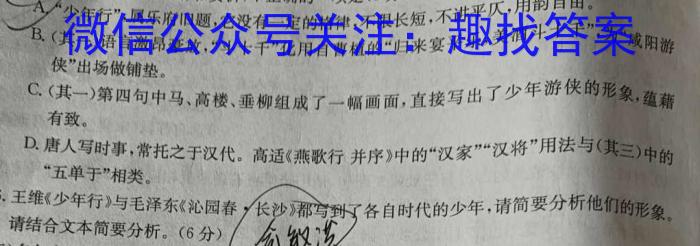 A."少年行"属乐府旧题,没有一定的格律,不限长短,不讲平仄,用韵自由。
B.(其一)
微信公众号关注:趣找答案
侠"出场做铺垫。
C.(其一)第四句中马、高楼、垂柳组成了一幅画面,直接写出了少年游侠的形象,蕴藉
有致。
D.唐人写时事,常托之于汉代。高适《燕歌行 并序》中的"汉家""汉将"用法与(其三)中的
"五单于"相类。
王维《少年行》与毛泽东《沁园春·长沙》都写到了各自时代的少年,请简要分析他们的形象。
请结合文本简要分析。(6分)